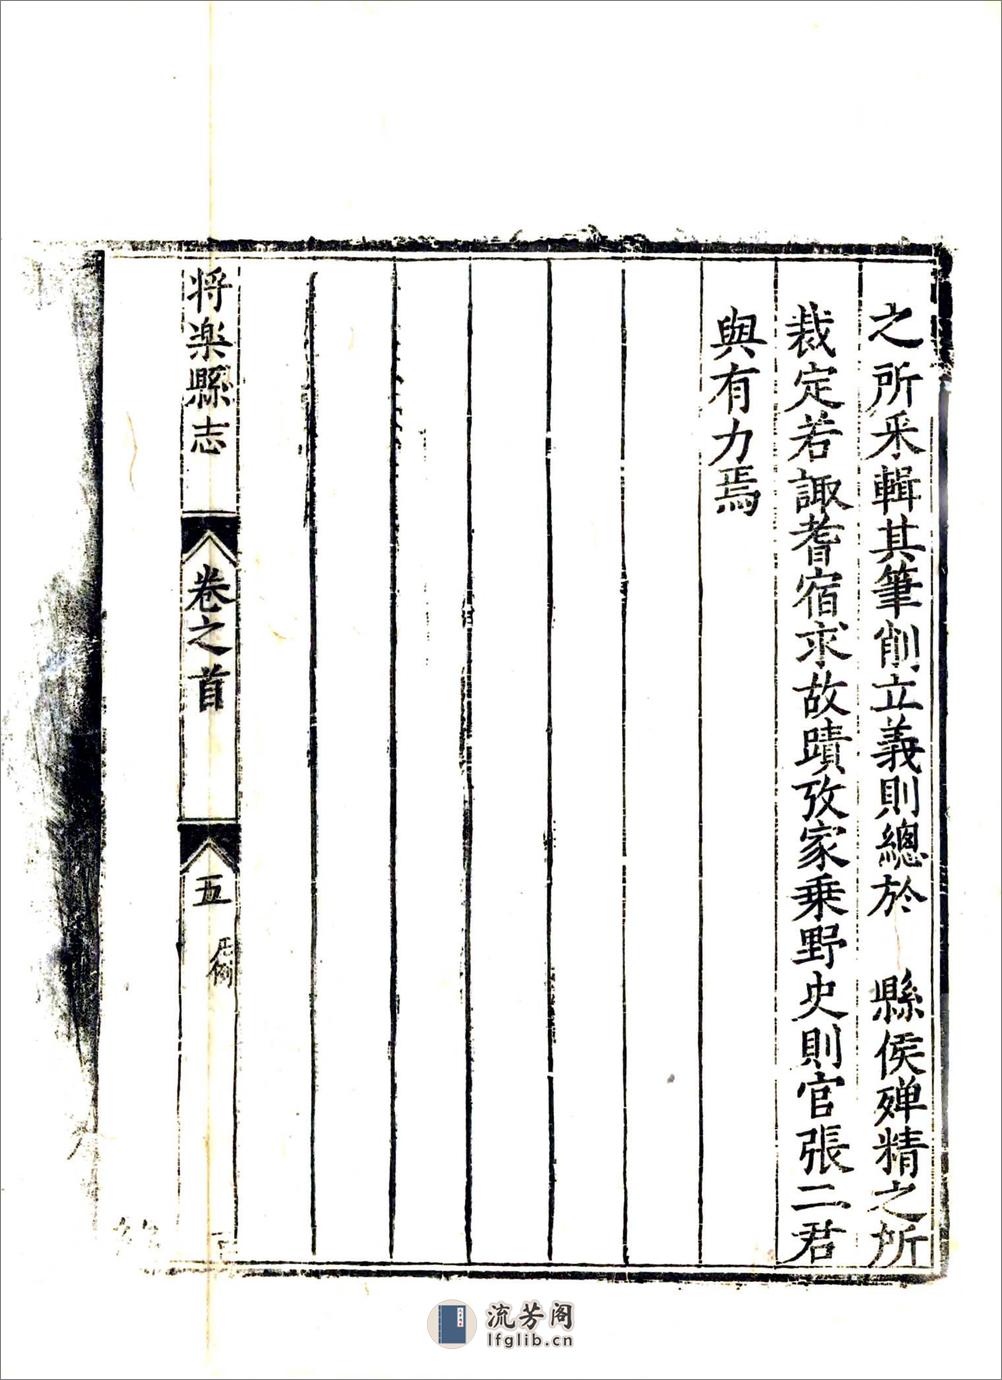 之所采輯其筆削立義則總於　縣侯殫精之所
裁定若諏耆宿求故蹟攷家乗野史則官張二君
與有力焉
将楽縣志
卷之首
五
凡例
流芳阁
lfglib.cn